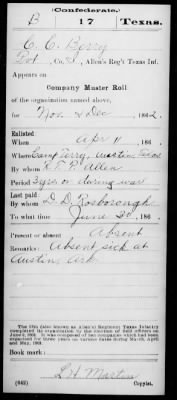 (Confederate.)
B 17 Texas.
C. C. Berry
Pvt, Co. I, Allen's Reg't Texas Inf.
Appears on
Company Muster Roll
of the organization named above,
for Nov & Dec, 1862.
Enlisted
When Apr 11, 186 .
Where Camp Terry, Austin, Texas
By R. T. P. Allen
Period 3 yrs or during war
Last paid
By D. D. Rosborough
To what time June 30, 186 .
Present or absent Absent
Remarks: Absent sick at
Austin, Ark
The 17th (also known as Allen's) Regiment Texas Infantry
completed its organization by the election of field officers on
June 9, 1862. It was composed of companies which had been
organized for three years on various dates during March, April
and May, 1862.
Book mark:
(642) L H Martin
Copyist.